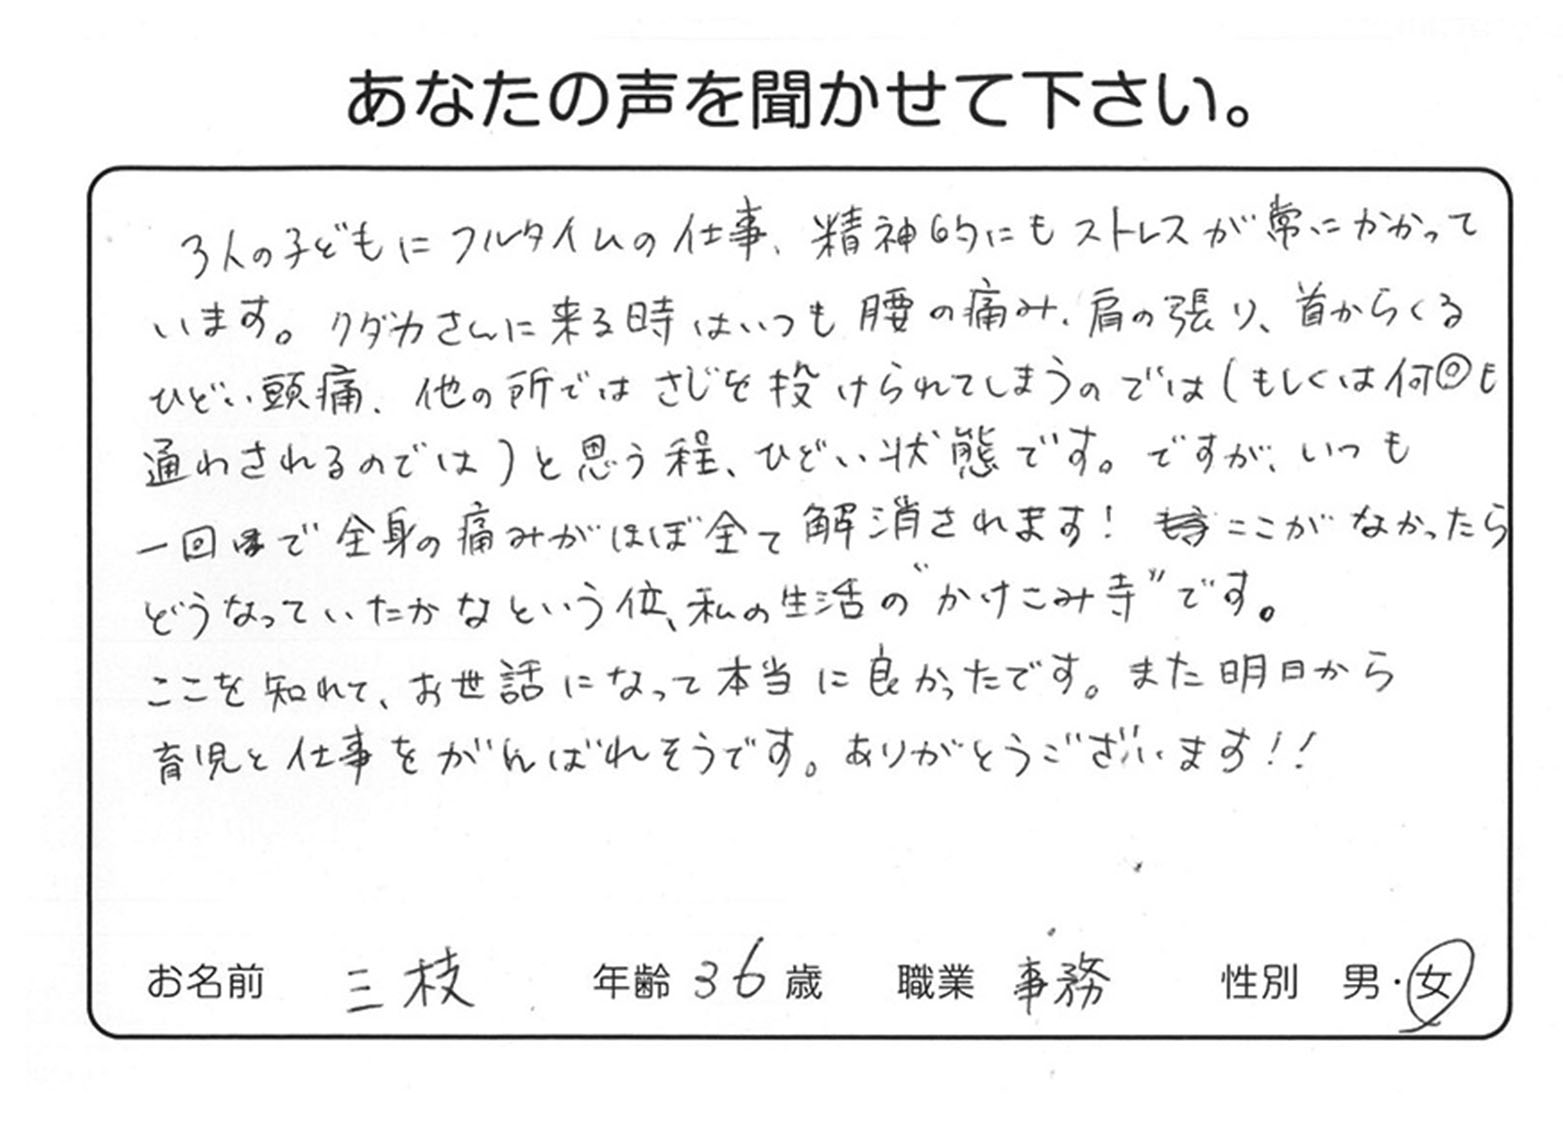 あなたの声を聞かせて下さい。
3人の子どもにフルタイムの仕事、精神的にもストレスが常にかかって
います。クダカさんに来る時はいつも腰の痛み、肩の張り、首からくる
ひどい頭痛、他の所ではさじを投げられてしまうのでは(もしくは何回も
通わされるのでは)と思う程、ひどい状態です。ですが、いつも
一回で全身の痛みがほぼ全て解消されます! ここがなかったら
どうなっていたかなという位、私の生活の“かけこみ寺”です。
ここを知れて、お世話になって本当に良かったです。また明日から
育児と仕事をがんばれそうです。ありがとうございます!!
お名前 三枝 年齢 36 歳 職業 事務 性別 男・女